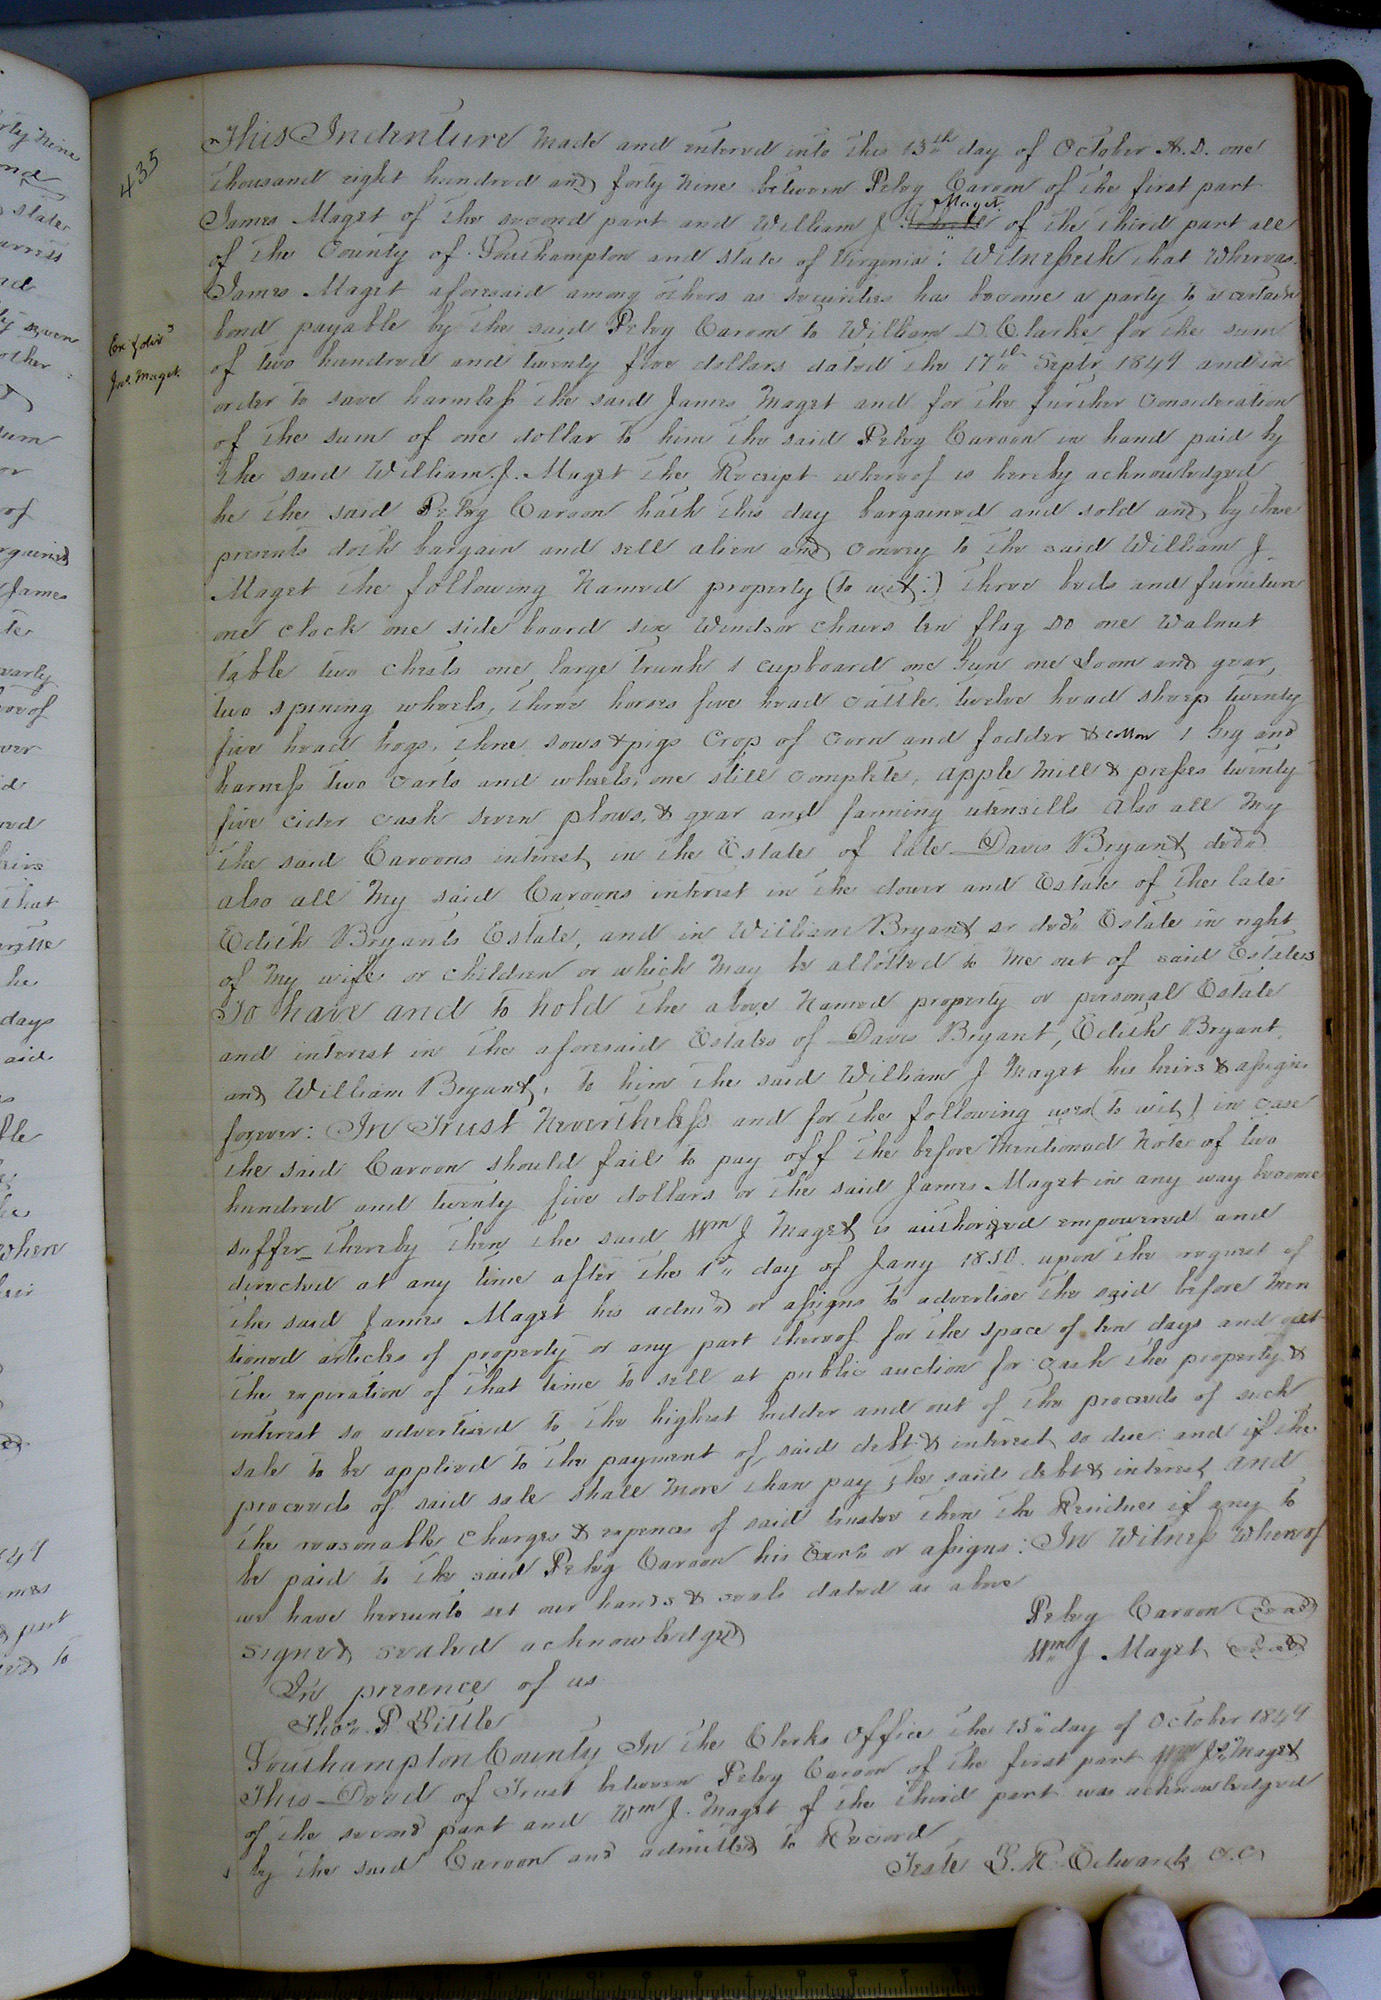 435
This Indenture made and entered into this 13th day of October A.D. one
thousand eight hundred and forty nine between Peleg Caroon of the first part
James Maget of the second part and William J. Maget of the third part all
of the County of Southampton and state of Virginia: Witnesseth that Whereas
James Maget aforesaid among others as securities has become a party to a certain
bond payable by the said Peleg Caroon to William D. Clarke for the sum
Ex & deliv'd
Jas. Maget
of two hundred and twenty five dollars dated the 17th Septr 1849 and in
order to save harmless the said James Maget and for the further consideration
of the sum of one dollar to him the said Peleg Caroon in hand paid by
the said William J. Maget the Receipt whereof is hereby acknowledged
he the said Peleg Caroon hath this day bargained and sold and by these
presents doth bargain and sell alien and convey to the said William J
Maget the following Named property (to wit:) three beds and furniture
one clock one side board six Windsor chairs ten flag Do one Walnut
table two chests one large trunk 1 cupboard one Gun one Loom and gear,
two spining wheels, three horses five head cattle twelve head sheep twenty
five head hogs, three sows & pigs Crop of corn and fodder & cotton 1 Gig and
harness two carts and wheels, one still complete, apple mill & presses twenty
five cider cask seven plows, & gear and farming utensills Also all my
the said Caroons interest in the Estate of late Davis Bryant decd
also all My said Caroons interest in the dower and Estate of the late
Edith Bryants Estate, and in William Bryant sr decd Estate in right
of My wife or children or which may be allotted to me out of said Estates
To have and to hold the above Named property or personal Estate
and interest in the aforesaid Estates of Davis Bryant, Edith Bryant
and William Bryant, to him the said William J Maget his heirs & assigns
forever: In Trust Nevertheless and for the following uses (to wit) in case
the said Caroon should fail to pay off the before mentioned Note of two
hundred and twenty five dollars or the said James Maget in any way become
suffer thereby then the said Wm J Maget is authorized empowered and
directed at any time after the 1st day of Jany 1850 upon the request of
the said James Maget his admrs or assigns to advertise the said before men
tioned articles of property or any part thereof for the space of ten days and at
the expiration of that time to sell at public auction for cash the property &
interest so advertised to the highest bidder and out of the proceeds of such
sale to be applied to the payment of said debt & interest so due and if the
proceeds of said sale shall more than pay the said debt & interest and
the reasonable charges & expences of said trustee then the Residue if any to
be paid to the said Peleg Caroon his Exrs or assigns: In Witness Whereof
we have hereunto set our hands & seals dated as above
Peleg Caroon Seal
signed sealed acknowledged
Wm J Maget Seal
In presence of us
Thos. P Little
Southampton County In the Clerks Office the 15th day of October 1849
This Deed of Trust between Peleg Caroon of the first part Maget
of the second part and Wm J. Maget of the third part was acknowledged
by the said Caroon and admitted to Record
Teste L. R. Edwards C.C